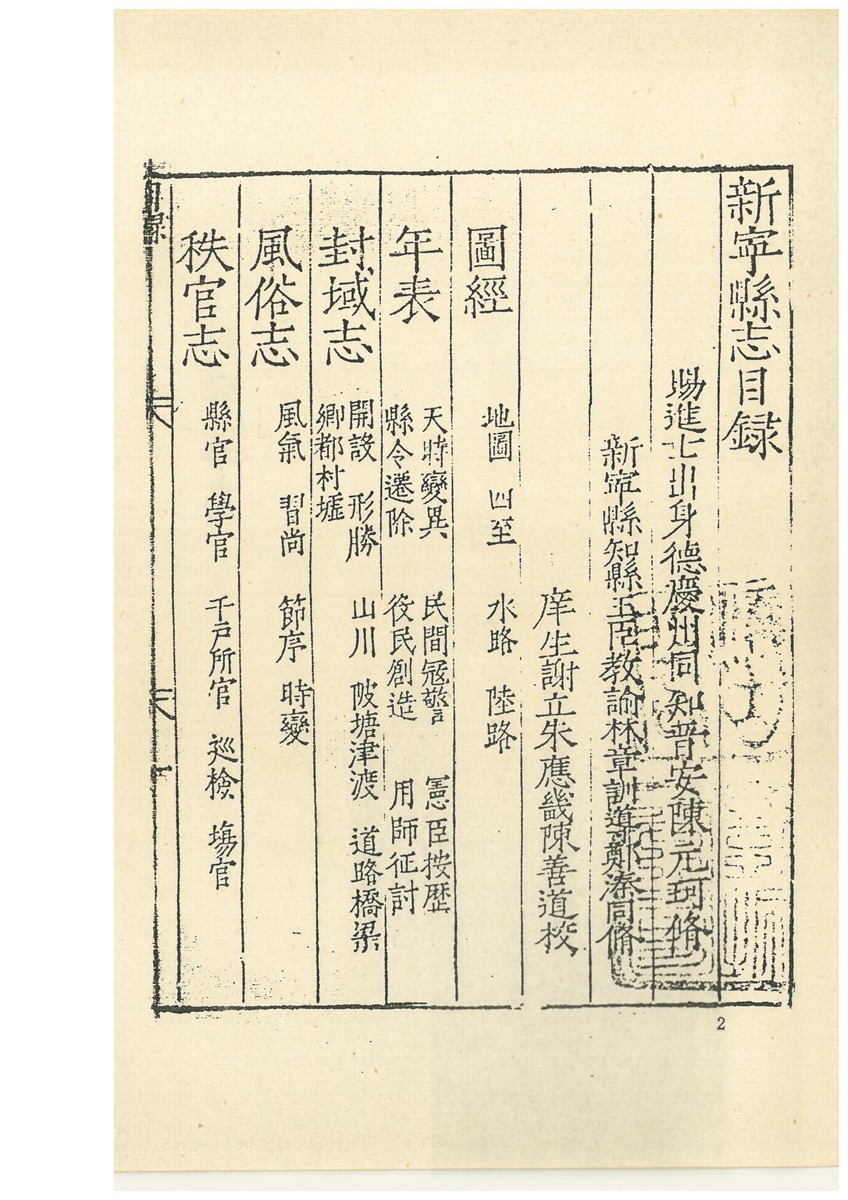 新寧縣志目録
賜進士出身德慶州同知晋安陳元珂脩
新寧縣知縣王臣教諭林章訓導鄭濂同脩
庠生謝立朱應畿陳善道校
圖經 地圖 四至 水路 陸路
年表 天時變異 民間冦警 憲臣按歴
縣令遷除 役民創造 用師征討
封域志 開設 形勝 山川 陂塘津渡 道路橋梁
鄉都村墟
風俗志 風氣 習尚 節序 時變
秩官志 縣官 學官 千戸所官 巡檢 塲官
目録
2